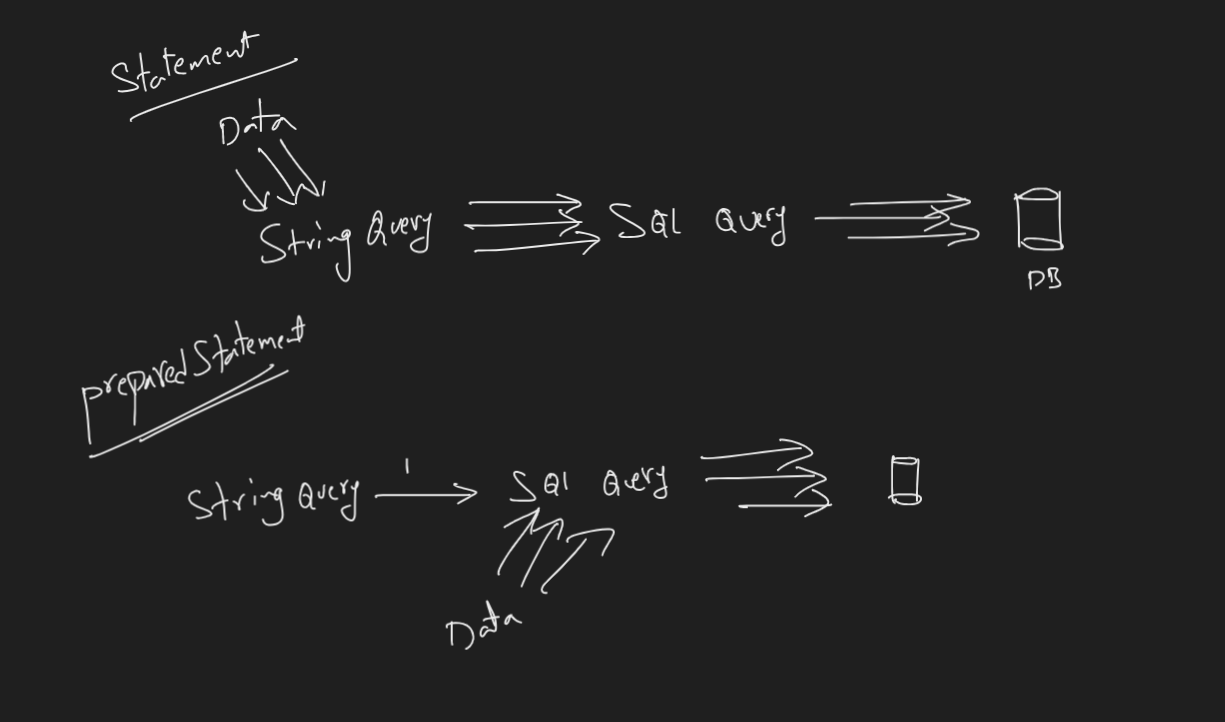 Statement
Data
String Query SQL Query
DB
preparedStatement
String Query 1 SQl Query
Data